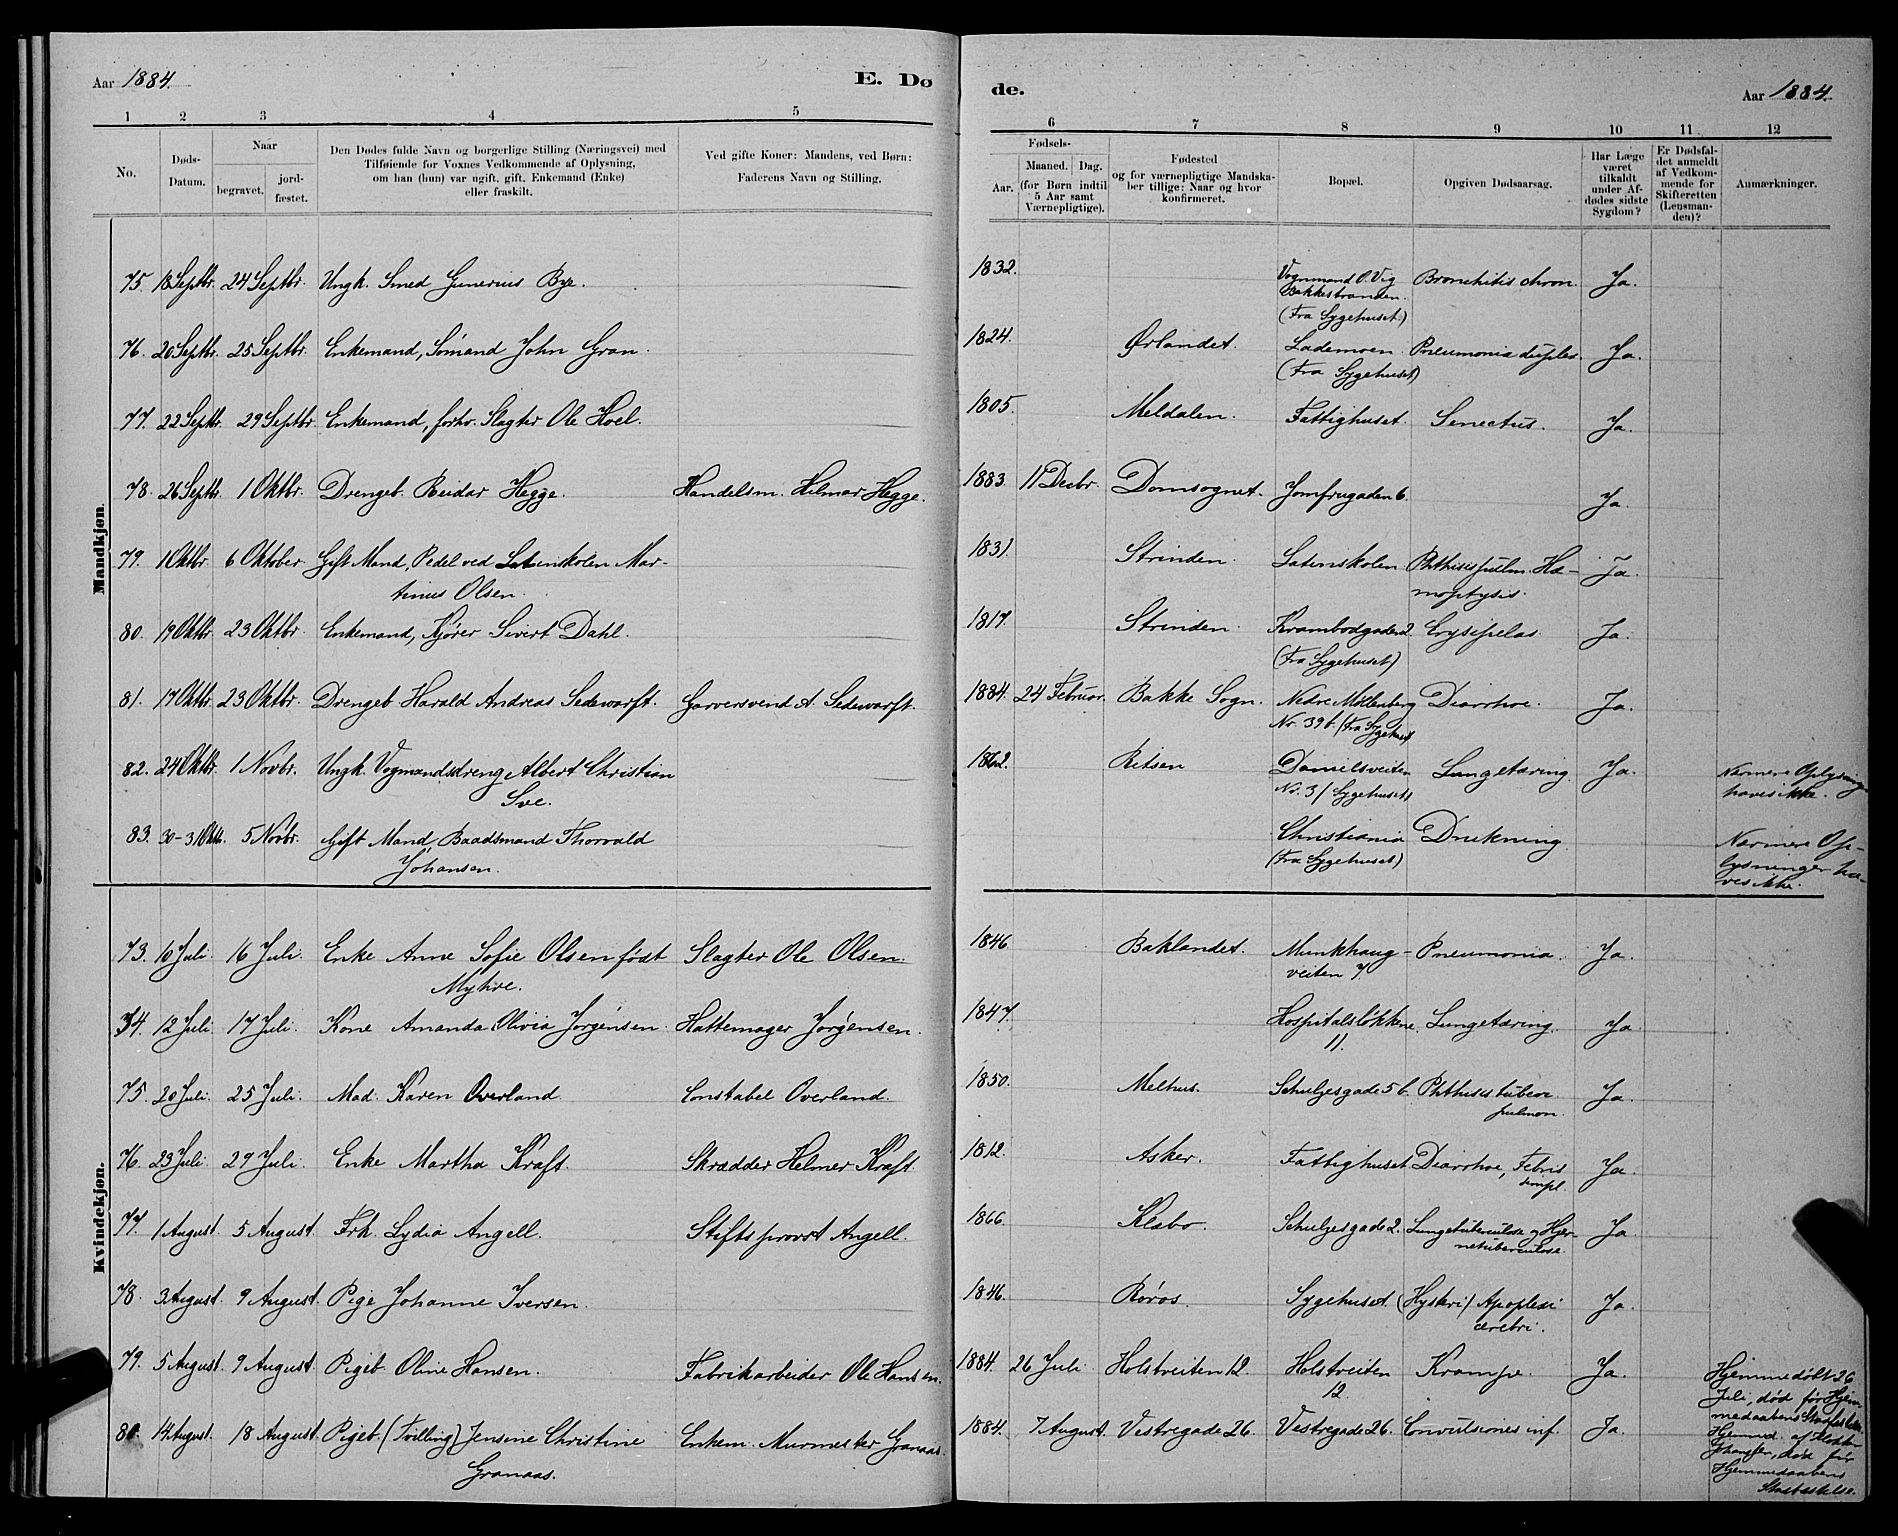 Aar 1884.
E. Dø
1 2 3 4 5
No.
Døds-Datum.
Naar
begravet.
jord-fæstet.
Den Dødes fulde Navn og borgerlige Stilling (Næringsvei) med
Tilføiende for Voxnes Vedkommende af Oplysning,
om han (hun) var ugift, gift, Enkemand (Enke)
eller fraskilt.
Ved gifte Koner: Mandens, ved Børn:
Faderens Navn og Stilling.
Mandkjøn.
75. 18 Septbr. 24 Septbr. Ungk. Smed Gunerius Bye.
76. 20 Septbr. 25 Septbr. Enkemand, Sömand John Gran.
77. 22 Septbr. 29 Septbr. Enkemand, forhv. Slagter Ole Hoel.
78. 26 Septbr. 1 Oktbr. Drengeb. Reidar Hegge. Handelsm. Helmar Hegge.
79. 1 Oktbr. 6 Oktober Gift Mand, Pedel ved Latinskolen Mar-
tinus Olsen.
80. 19 Oktbr. 23 Oktbr. Enkemand, Kjörer Sivert Dahl.
81. 17 Oktbr. 23 Oktbr. Drengeb. Harald Andreas Sedewarft. Garversvend A. Sedewarft.
82. 24 Oktbr. 1 Novbr. Ungk. Vogmandsdreng Albert Christian
Sve.
83. 30-31 Oktb. 5 Novbr. Gift Mand Baadsmand Thorvald
Johansen.
Kvindekjøn.
73. 10 Juli. 16 Juli. Enke Anne Sofie Olsen født Slagter Ole Olsen.
Myhre.
74. 12 Juli 17 Juli. Kone Amanda Olivia Jorgensen Hattemager Jorgensen.
75. 20 Juli. 25 Juli. Mad. Karen Overland. Constabel Overland.
76. 23 Juli 29 Juli. Enke Martha Kraft. Skrædder Helmer Kraft.
77. 1 August. 5 August. Frk. Lydia Angell. Stiftsprovst Angell.
78. 3 August. 9 August. Pige Johanne Iversen.
79. 5 August. 9 August. Pigeb. Oline Hansen. Fabrikarbeider Ole Hansen.
80. 14 August. 18 August. Pigeb. (Tvilling) Jensine Christine Enkem. Murmester Granaas.
Granaas.
de.
Aar 1884.
6 7 8 9 10 11 12
Fødsels-
Aar.
Maaned. Dag.
(for Børn indtil
5 Aar samt
Værnepligtige).
Fødested
og for værnepligtige Mandska-
ber tillige: Naar og hvor
konfirmeret.
Bopæl.
Opgiven Dødsaarsag.
Har Læge
været
tilkaldt
under Af-
dødes sidste
Sygdom?
Er Dødsfal-
det anmeldt
af Vedkom-
mende for
Skifteretten
(Lensman-
den)?
Anmærkninger.
1832. Vognmand O. Vig Bronchitis chron. Ja.
Bakkestranden.
(Fra Sygehuset.)
1824. Ørlandet. Lademoen. Pneumonia duplex. Ja.
(Fra Sygehuset)
1805. Meldalen. Fattighuset. Senectus. Ja.
1883. 11 Decbr. Domsognet. Jomfrugaden 6. Ja.
1831. Strinden. Latinskolen Phthisis pulm. Hæ- Ja.
moptysis.
1817. Strinden. Krambodgaden 2. Erysipelas. Ja.
(Fra Sygehuset)
1884. 24 Februar. Bakke Sogn. Nedre Möllenberg Diarrhoe. Ja.
No. 39 b. (Fra Sygehuset)
1862. Ritsen Danielsveiten Lungetæring. Ja. Nærmere Oplysning
Nr. 3 / Sygehuset) haves ikke.
Christiania Drukning Nærmere Op-
(Fra Sygehuset) lysninger ha-
ves ikke.
1846 Baklandet. Munkhaug- Pneumonia. Ja.
veiten 7.
1847. Hospitalslökkene Lungetæring. Ja
11.
1850. Melhus. Schulzesgade 5 b. Phthisis tuberc Ja.
pulmon.
1812. Asker. Fattighuset Diarrhoe, Febris Ja.
simpl.
1866. Klæbo. Schulzesgade 2. Lungetuberculose og Hjer- Ja.
netuberculose.
1846. Röros. Sygehuset. (Hysteri) Apoplexi Ja.
cerebri.
1884. 26 Juli Holstveiten 12. Holstveiten Krampe. Ja. Hjemmedöbt 26
12. Juli, död før Hjem
medaabens Stadfæstelse.
1884. 7 August. Vestregade 26. Vestregade 26. Convulsiones inf. Ja. Hjemmed. af Klokker
död før
Hjemmedaabens
Stadfæstelse.